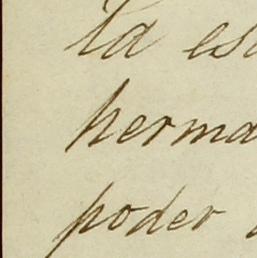 la es
herma
poder